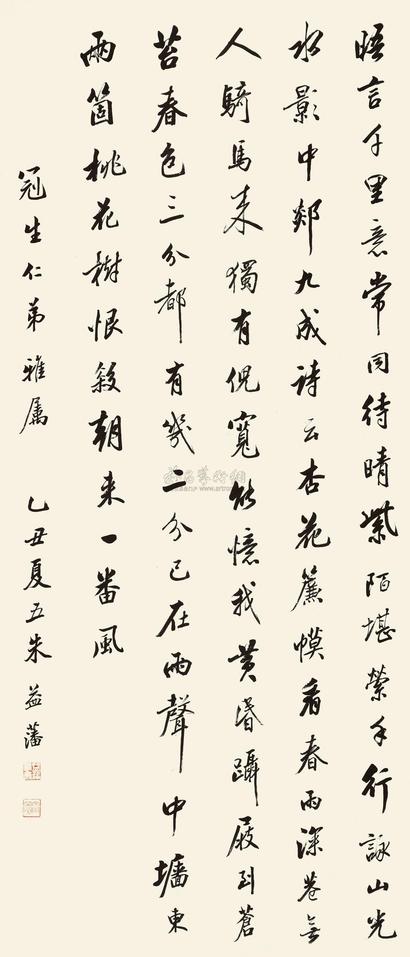 晤言千里意常同待晴紫陌堪縈手行詠山光
水影中郯九成詩云杏花簾幙看春雨深巷無
人騎馬來獨有倪寬能憶我黃昏躡屐到蒼
苔春色三分都有幾二分已在雨聲中墻東
兩箇桃花樹恨殺朝來一番風
冠生仁弟雅屬 乙丑夏五朱益藩